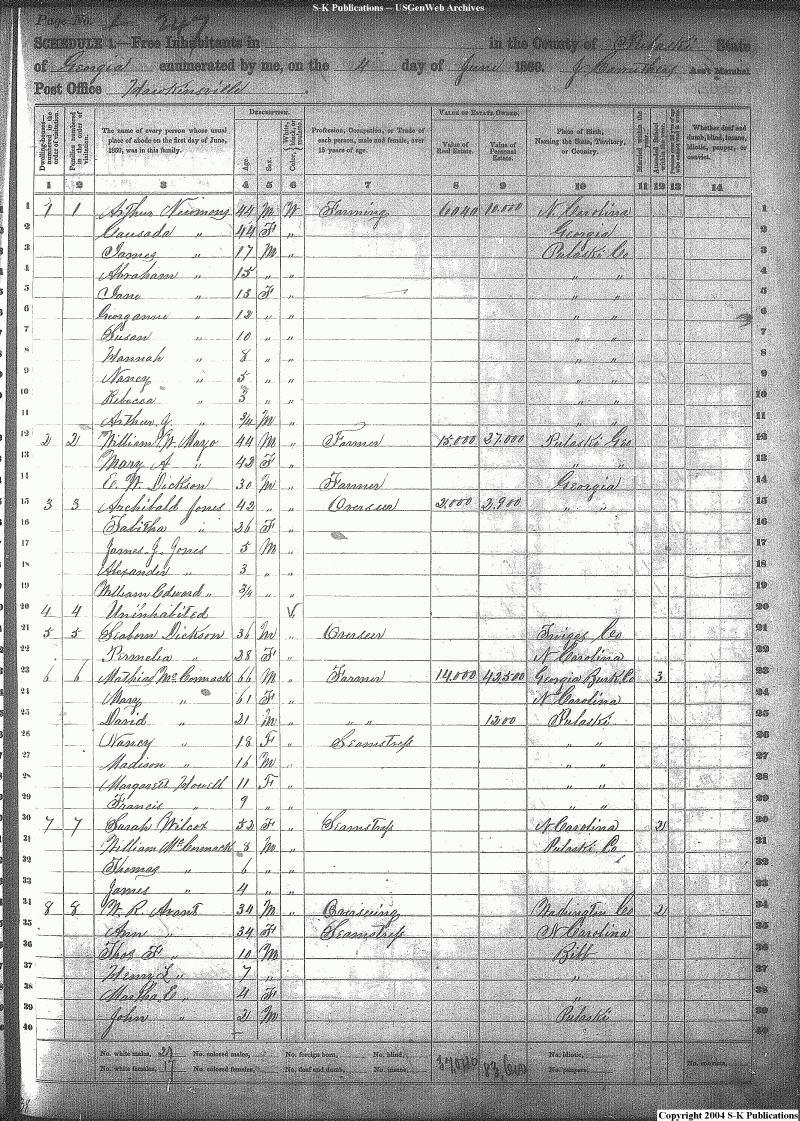 S-K Publications -- USGenWeb Archives
Page No. 1 247
SCHEDULE 1.—Free Inhabitants in in the County of Pulaski State
of Georgia enumerated by me, on the 4 day of June 1860. Ass't Marshal
Post Office Hawkinsville
DESCRIPTION. VALUE OF ESTATE OWNED.
Dwelling-houses—numbered in the order of visitation. Families numbered in the order of visitation. The name of every person whose usual place of abode on the first day of June, 1860, was in this family. Age. Sex. White, Color, black, or mulatto. Profession, Occupation, or Trade of each person, male and female, over 15 years of age. Value of Real Estate. Value of Personal Estate. Place of Birth, Naming the State, Territory, or Country. Married within the year. Attended School within the year. Whether deaf and dumb, blind, insane, idiotic, pauper, or convict.
1 2 3 4 5 6 7 8 9 10 11 12 13 14
1 1 1 Arthur 44 M W Farming 6040 10.000 N. Carolina 1
2 " 44 F " Georgia 2
3 James " 17 M " Pulaski Co 3
4 Abraham " 15 " " " " 4
5 Jane " 13 F " " " 5
6 Georganne " 12 " " " " 6
7 Susan " 10 " " " " 7
8 Hannah " 8 " " " " 8
9 Nancy " 5 " " " " 9
10 Rebecca " 3 " " " " 10
11 Arthur G. " 3/4 M " " 11
12 2 2 William W. Mayo 44 M " Farmer 15.000 27.000 Pulaski Geo 12
13 Mary A " 42 F " " " 13
14 E. W. Dickson 30 M " Farmer Georgia 14
15 3 3 Archibald Jones 42 " " Overseer 2.000 2.900 " " 15
16 Tabitha " 26 F " 16
17 James. J. Jones 5 M " 17
18 Alexander " 3 " " 18
19 William Edward " 3/4 " " 19
20 4 4 Uninhabited 20
21 5 5 Seaborn Dickson 36 M " Overseer Twiggs Co 21
22 Permelia " 28 F " N Carolina 22
23 6 6 Mathias McCormack 66 M " Farmer 14.000 42500 Georgia Burk Co 3 23
24 Mary " 61 F " N Carolina 24
25 David " 21 M " " " 1200 Pulaski 25
26 Nancy " 18 F " Seamstress " " 26
27 Madison " 16 M " " " 27
28 Margarett Howell 11 F " " " 28
29 Francis " 9 " " " " 29
30 7 7 Sarah Wilcox 52 F " Seamstress N Carolina 2 30
31 William McCormack 8 M " Pulaski Co 31
32 Thomas " 6 " " 32
33 James " 4 " " 33
34 8 8 W. R. Avant 34 M " Overseeing Washington Co 2 34
35 Ann " 34 F Seamstress N Carolina 35
36 Thos F " 10 M Bibb 36
37 Henry L " 7 " " 37
38 Martha E " 4 F " 38
39 John " 2 M Pulaski 39
40 40
No. white males, No. colored males, No. foreign born, No. blind, No. idiotic, No. convicts,
No. white females, 17 No. colored females, No. deaf and dumb, No. insane, No. paupers,
Copyright 2004 S-K Publications